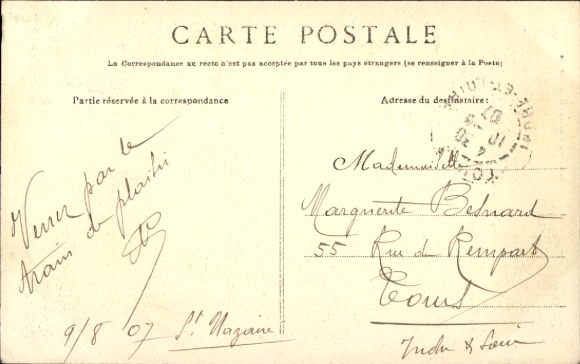 CARTE POSTALE
La Correspondance au recto n'est pas acceptée par tous les pays étrangers (se renseigner à la Poste)
Partie réservée à la correspondance
Adresse du destinataire:
Venez par le
train de plaisir
9/8 07 St Nazaire
Mademoiselle
Marguerite Besnard
55 Rue du Rempart
Tours
Indre & Loire
INDRE-ET-LOIRE